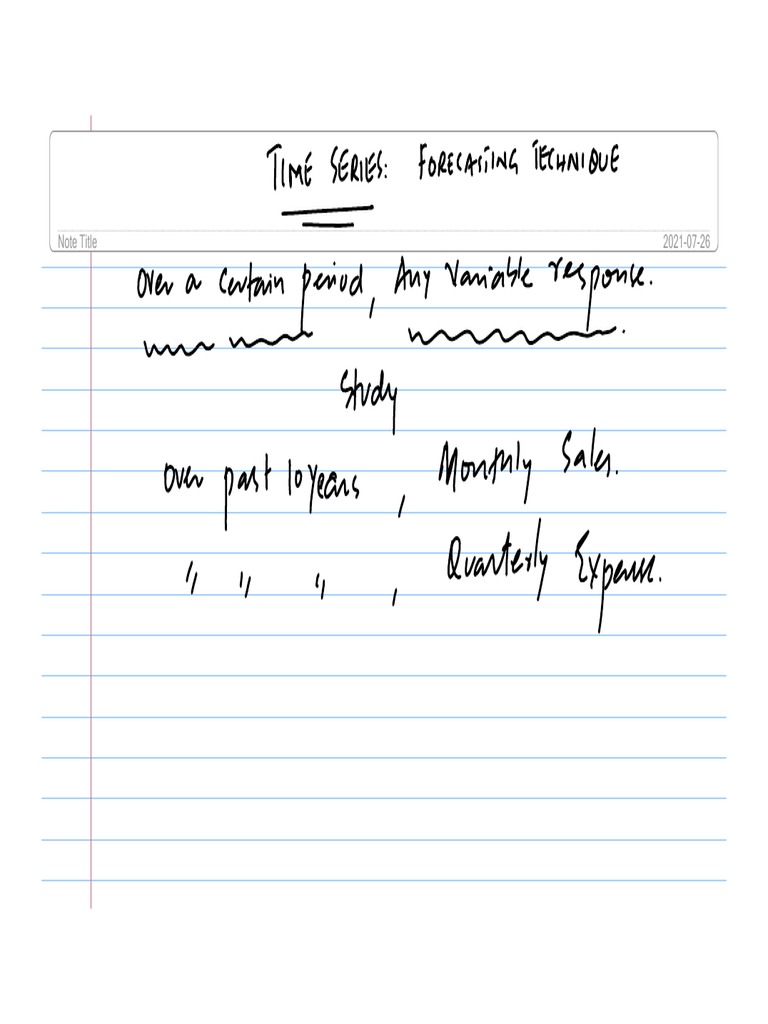 TIME SERIES: FORECASTING TECHNIQUE
Note Title 2021-07-26
Over a certain period, Any variable response.
Study
Over past 10 years, Monthly Sales.
" " " , Quarterly Expense.